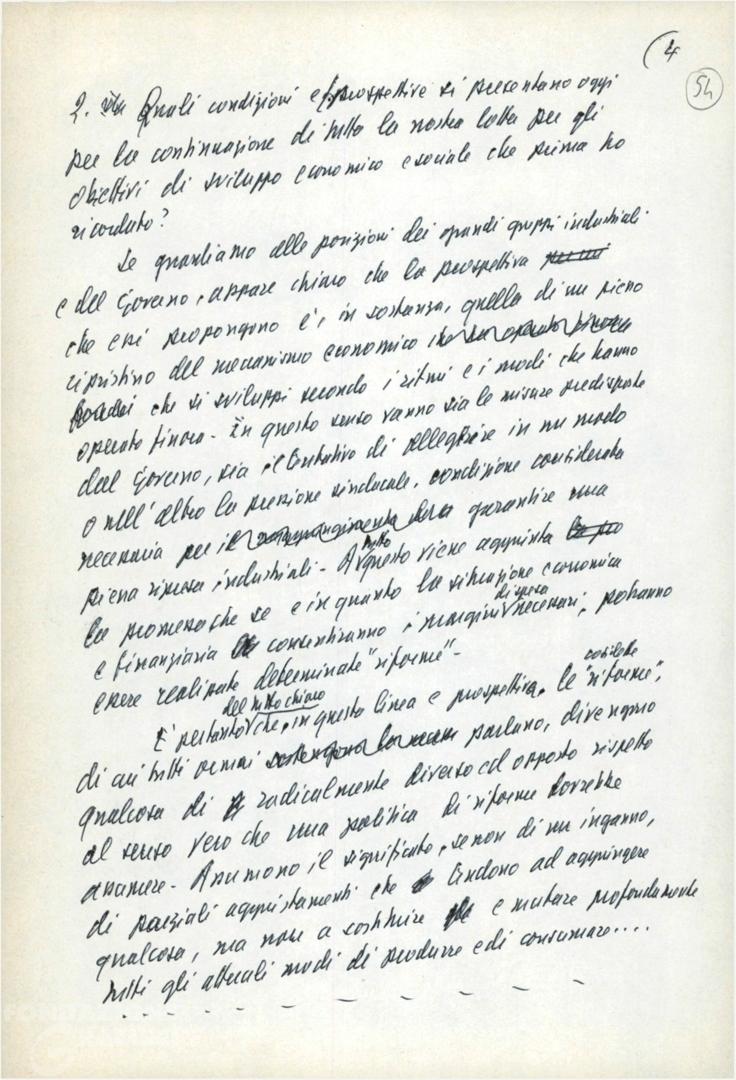 (4
54
2. Quali condizioni e prospettive si presentano oggi
per la continuazione di tutta la nostra lotta per gli
obiettivi di sviluppo economico e sociale che prima ho
ricordato?
Se guardiamo alle posizioni dei grandi gruppi industriali
e del Governo, appare chiaro che la prospettiva
che essi propongono è, in sostanza, quella di un pieno
ripristino del meccanismo economico
che si sviluppi secondo i ritmi e i modi che hanno
operato finora. In questo senso vanno sia le misure predisposte
dal Governo, sia il tentativo di alleggerire in un modo
o nell'altro la pressione sindacale, condizione considerata
necessaria per garantire una
piena ripresa industriale. A tutto questo viene aggiunta
la promessa che se e in quanto la situazione economica
e finanziaria consentiranno i margini di spesa necessari, potranno
essere realizzate determinate "riforme".
È pertanto del tutto chiaro che, in questa linea e prospettiva, le cosidette "riforme",
di cui tutti ormai parlano, divengono
qualcosa di radicalmente diverso ed opposto rispetto
al senso vero che una politica di riforme dovrebbe
assumere. Assumono il significato, se non di un inganno,
di parziali aggiustamenti che tendono ad aggiungere
qualcosa, ma non a sostituire e mutare profondamente
tutti gli attuali modi di produrre e di consumare....